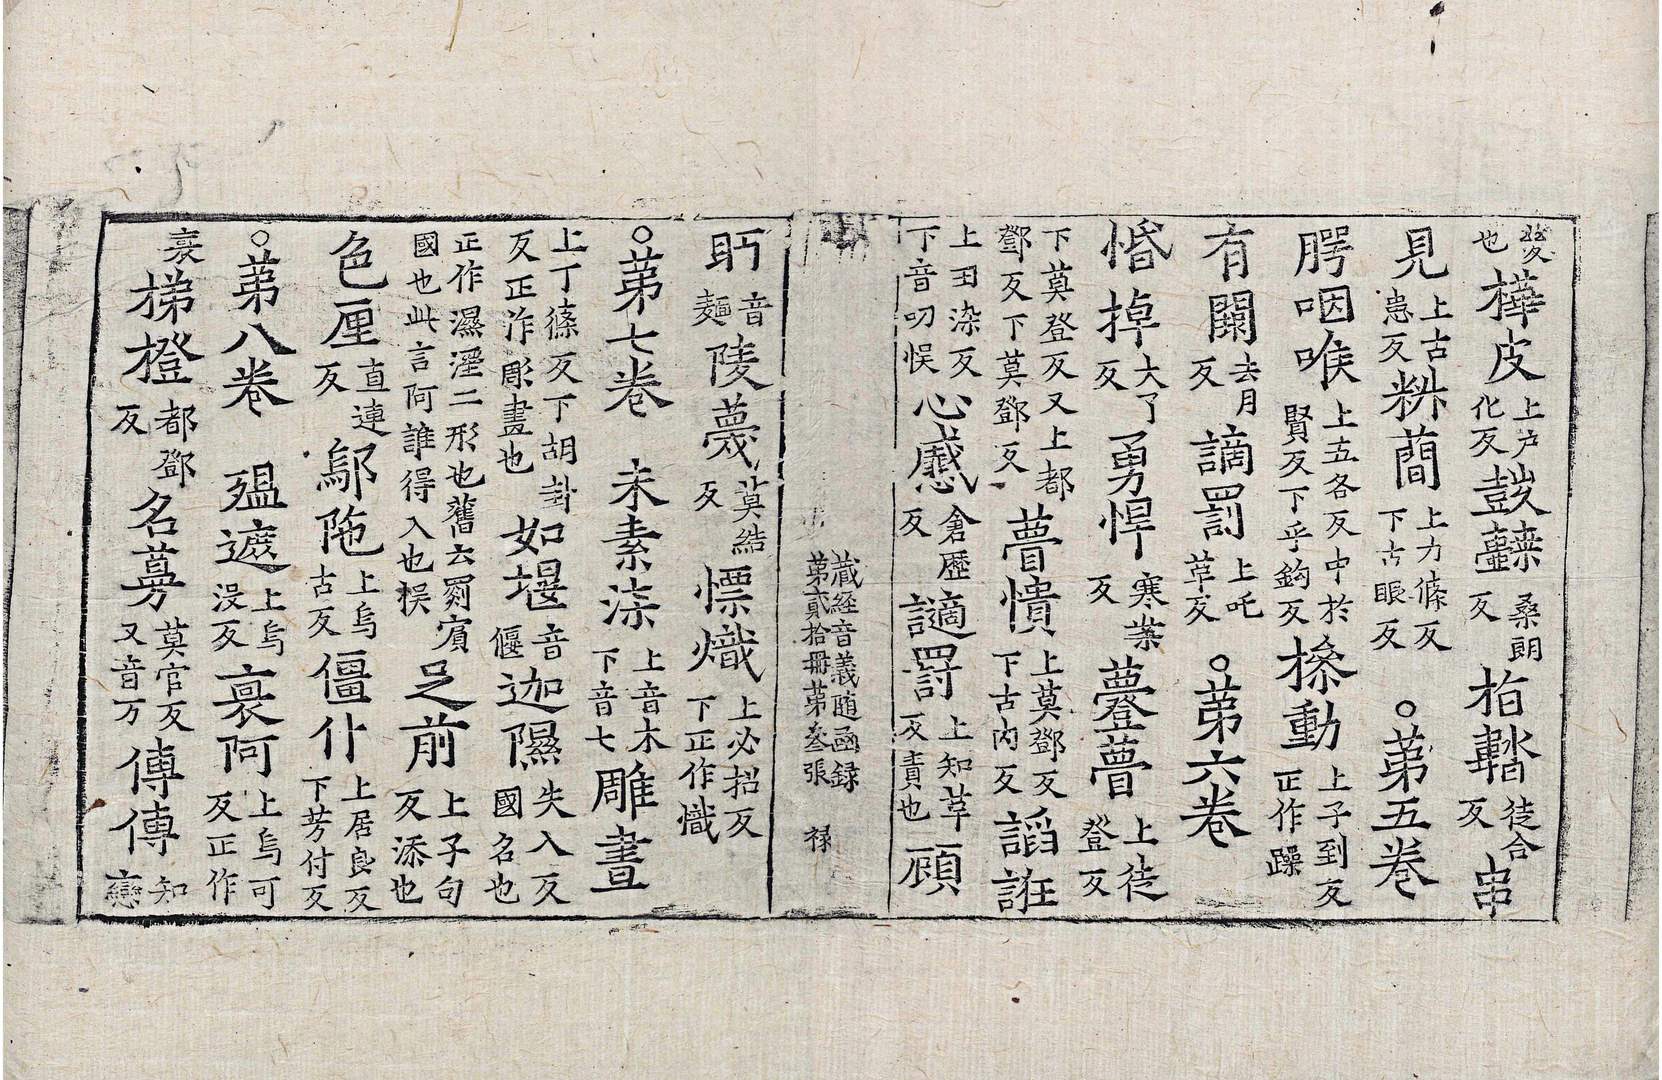 也樺皮上户化反鼓桑朗反柏鞳徒合反串
見上古患反䕞上力篠反下古眼反○第五卷
腭咽喉上五各反中於賢反下乎鈎反動上子到反正作躁
有闕去月反謫罰上吒革反○第六卷
惛掉大了反勇悍寒案反瞢上徒登反
下莫登反又上都鄧反下莫鄧反瞢憒上莫鄧反下古內反謟誑
上丑染反下音叨悮心慼倉歷反讁罸上知革反責也頋
藏経音義随函録第貳拾冊第叁張 禄
眄音麺陵蔑莫結反熛熾上必招反下正作熾
○第七卷 未素柒上音木下音七雕畫
上丁篠反下胡卦反正作彫畫也如堰音偃迦隰失入反國名也
正作濕溼二形也舊云罽賓國也此言阿誰得入也悮足前上子句反添也
色厘直連反鄔陁上烏古反僵仆上居良反下芳付反
○第八卷 殟遮上烏沒反裒阿上烏可反正作
裒梯橙都鄧反名蔓莫官反又音万傳傳知戀